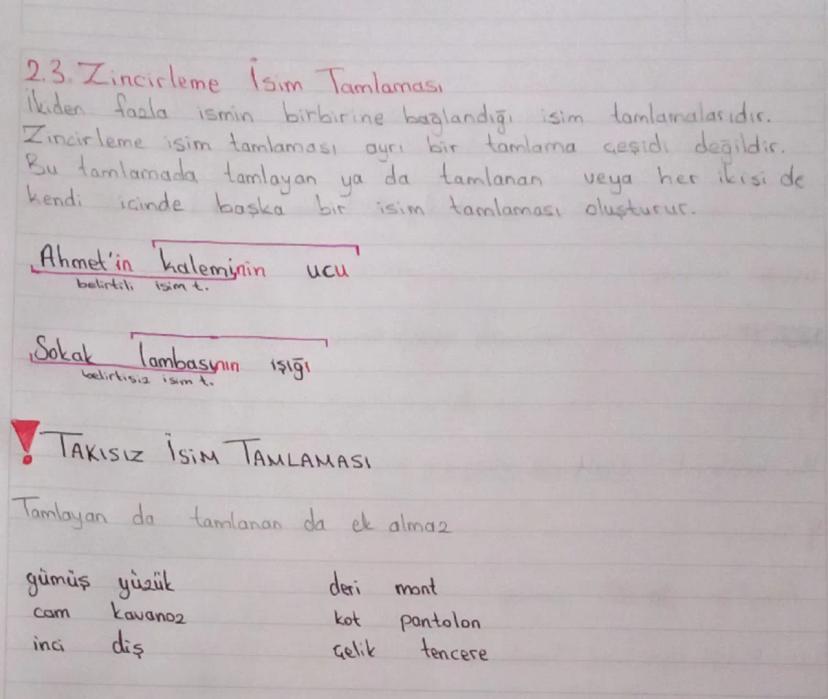 2.3. Zincirleme İsim Tamlaması
İkiden fazla ismin birbirine bağlandığı isim tamlamalarıdır.
Zincirleme isim tamlaması ayrı bir tamlama çeşidi değildir.
Bu tamlamada tamlayan ya da tamlanan veya her ikisi de
kendi içinde başka bir isim tamlaması oluşturur.
Ahmet'in kaleminin ucu
belirtili isim t.
Sokak lambasının ışığı
belirtisiz isim t.
! TAKISIZ İSİM TAMLAMASI
Tamlayan da tamlanan da ek almaz
gümüş yüzük deri mont
cam kavanoz kot pantolon
inci diş çelik tencere